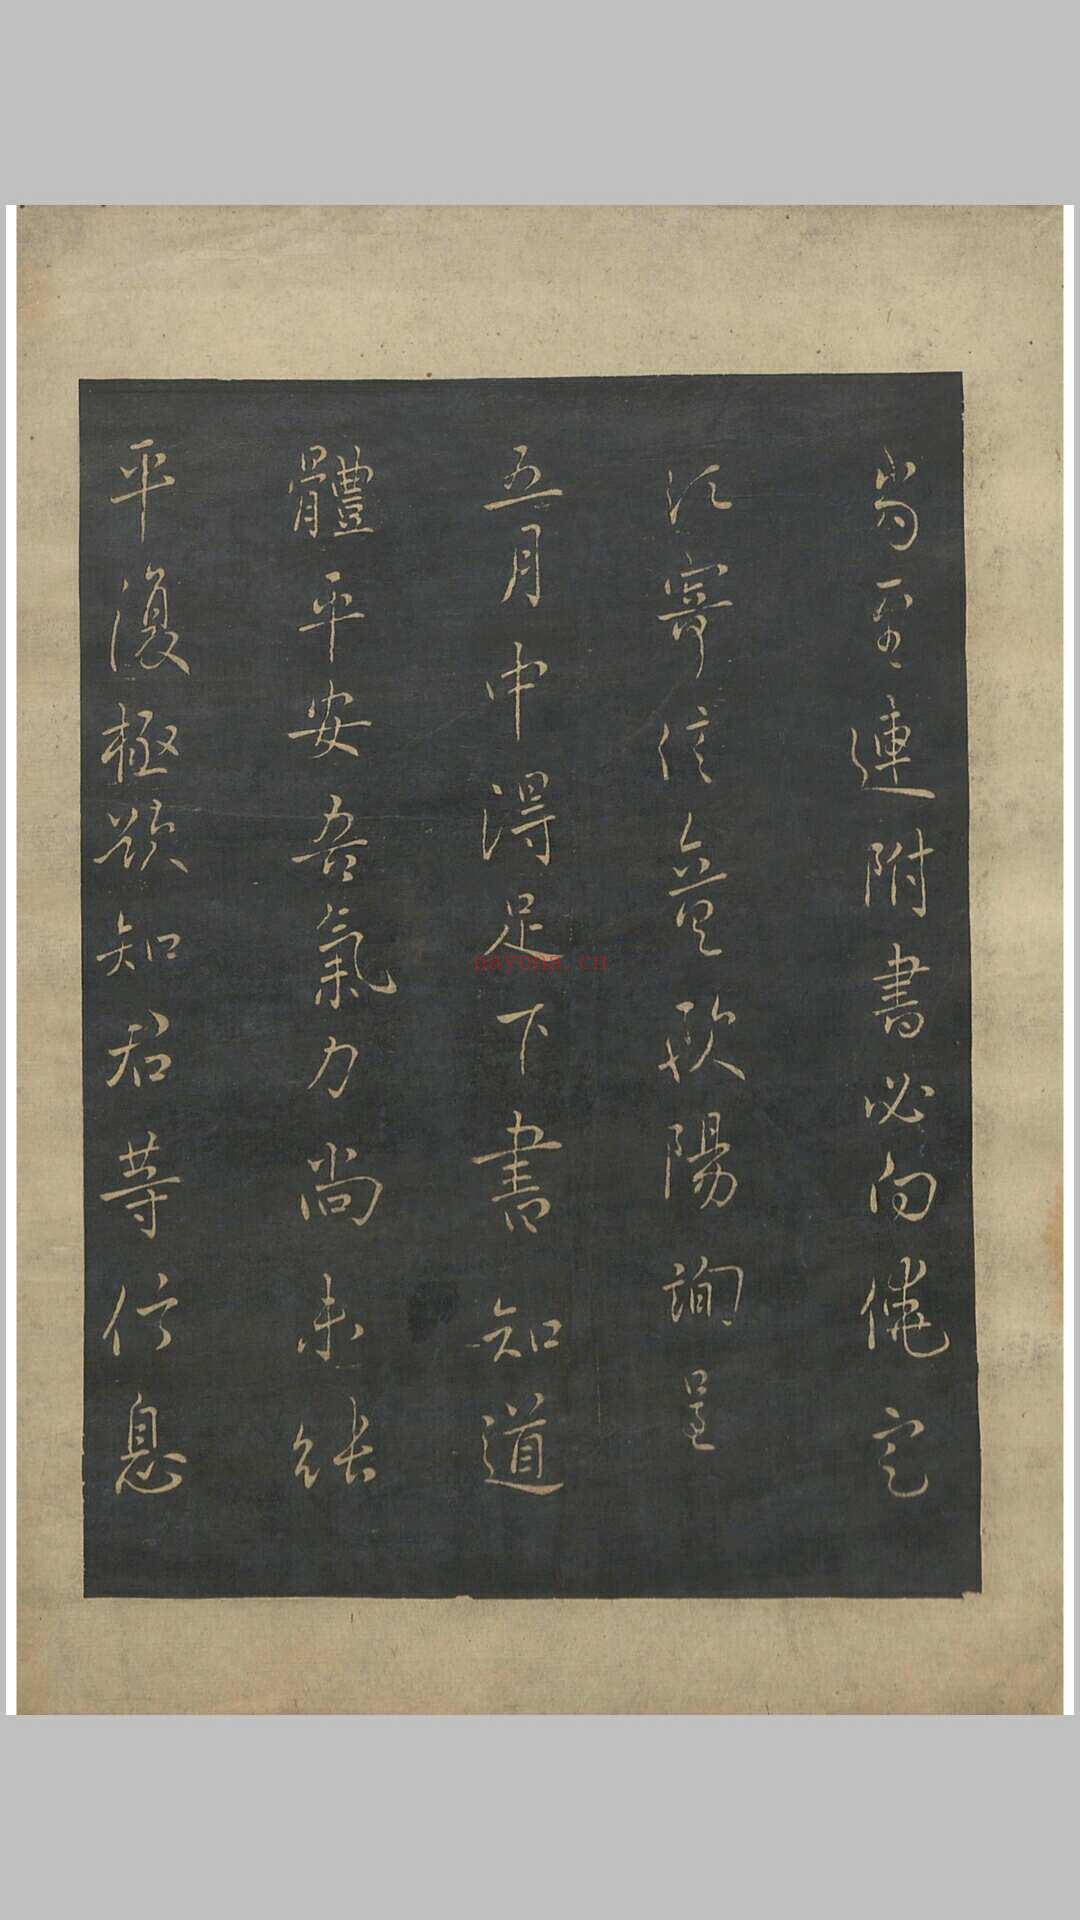 尚至連附書必向饒定
須寄信無歐陽詢呈
五月中得足下書知道
體平安吾氣力尚未能
平復極欲知君等信息
aayona.cn